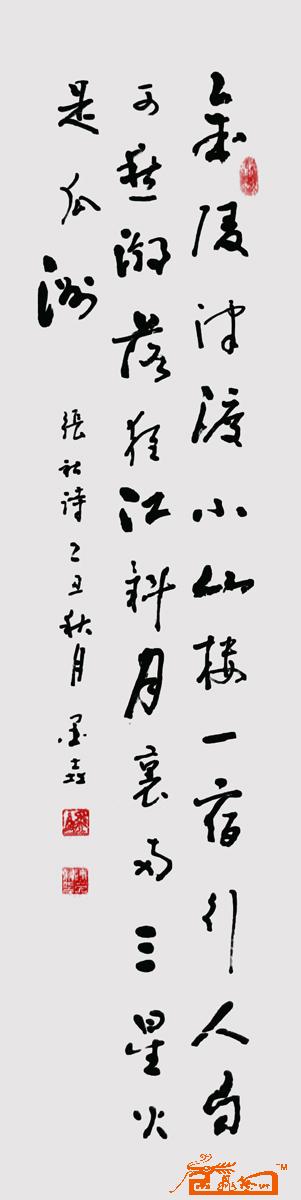 金陵津渡小仙樓一宿行人自
可愁潮落夜江斜月裏两三星火
是瓜洲
張祜詩乙丑秋月墨